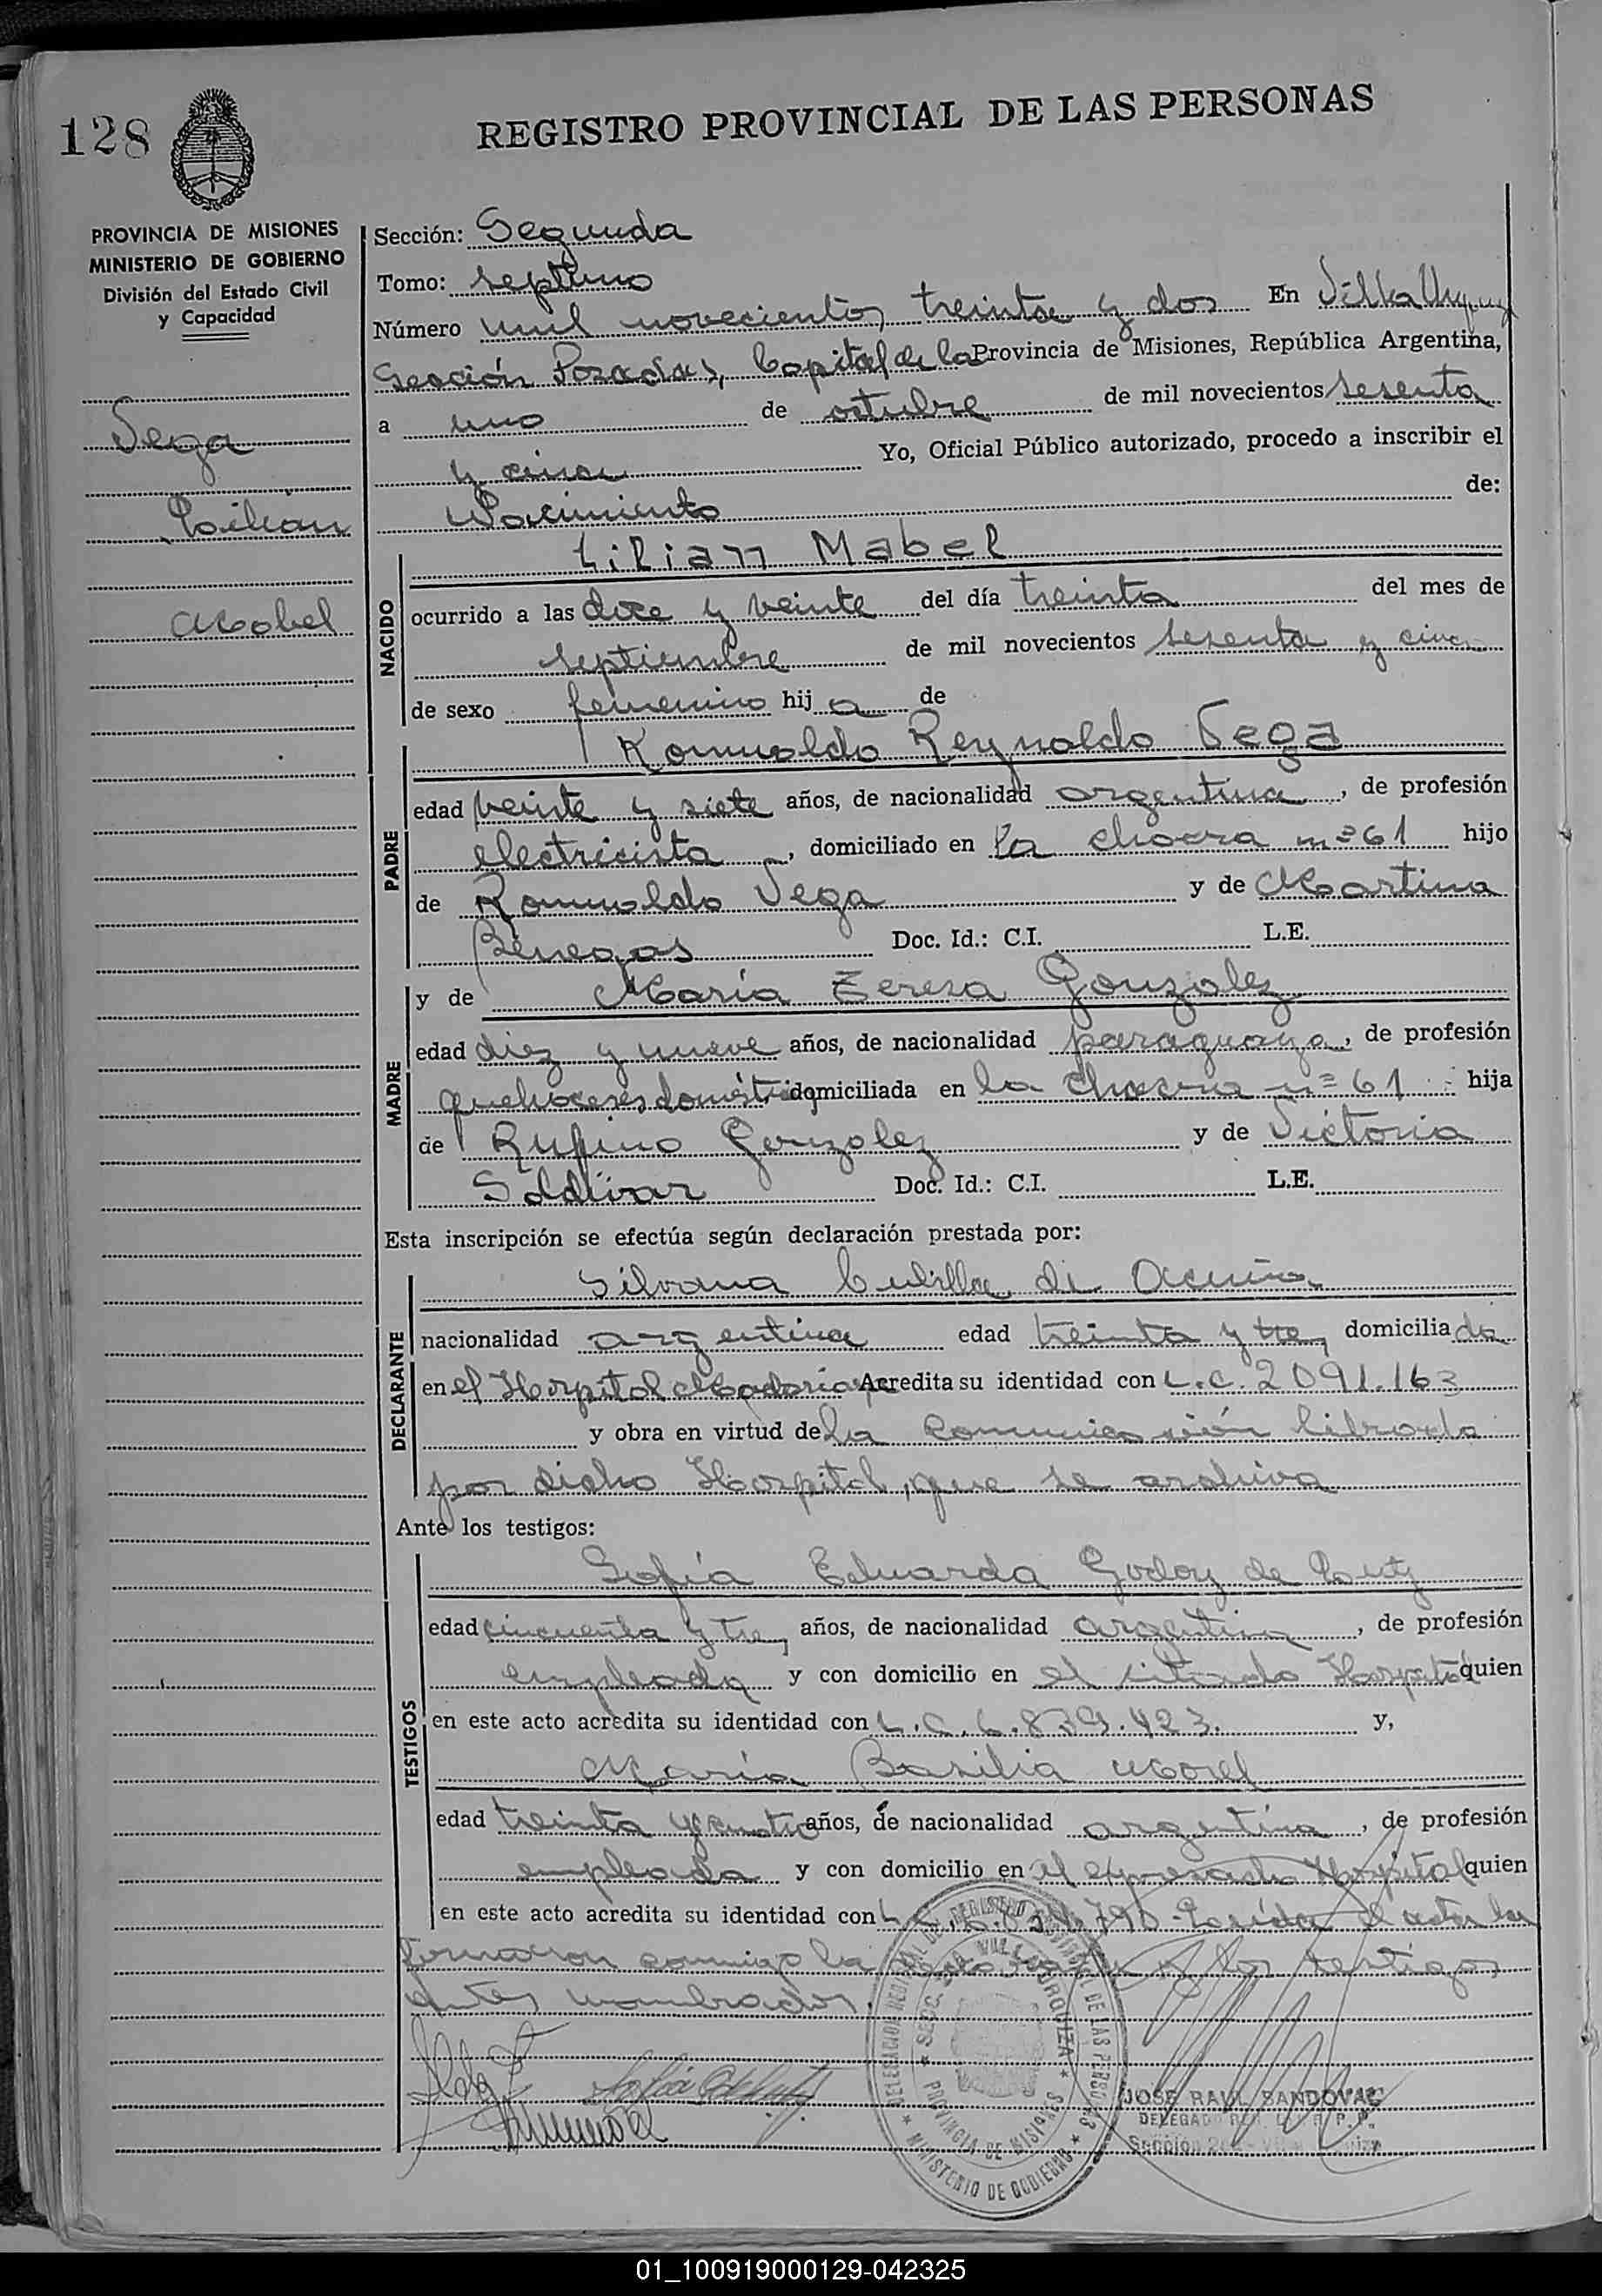 128
REGISTRO PROVINCIAL DE LAS PERSONAS
PROVINCIA DE MISIONES
MINISTERIO DE GOBIERNO
División del Estado Civil
y Capacidad
Vega
Lilian
Mabel
Sección: Segunda
Tomo: septimo
Número mil novecientos treinta y dos En Villa Urquiza
Sección Posadas, Capital de la Provincia de Misiones, República Argentina,
a uno de octubre de mil novecientos sesenta
y cinco Yo, Oficial Público autorizado, procedo a inscribir el
Nacimiento de:
NACIDO
Lilian Mabel
ocurrido a las doce y veinte del día treinta del mes de
septiembre de mil novecientos sesenta y cinco
de sexo femenino hija de
PADRE
Romualdo Reynaldo Vega
edad veinte y siete años, de nacionalidad argentina, de profesión
electricista, domiciliado en la chacra nº 61 hijo
de Romualdo Vega y de Martina
Benegas Doc. Id.: C.I. L.E.
MADRE
y de María Teresa Gonzalez
edad diez y nueve años, de nacionalidad paraguaya, de profesión
quehaceres domésticos domiciliada en la chacra nº 61 hija
de Rufino Gonzalez y de Victoria
Saldivar Doc. Id.: C.I. L.E.
Esta inscripción se efectúa según declaración prestada por:
DECLARANTE
Silvana Cubilla de Acuña
nacionalidad argentina edad treinta y tres domiciliada
en el Hospital Madariaga Acredita su identidad con L.C. 2091.163
y obra en virtud de la comunicación librada
por dicho Hospital, que se archiva
Ante los testigos:
TESTIGOS
Sofía Eduarda Godoy de
edad cincuenta y tres años, de nacionalidad argentina, de profesión
empleada y con domicilio en el citado Hospital quien
en este acto acredita su identidad con L.C. 6.839.423. y,
María Basilia Morel
edad treinta y cuatro años, de nacionalidad argentina, de profesión
empleada y con domicilio en el expresado Hospital quien
en este acto acredita su identidad con L.C. 790 Leída el acta la
firmaron conmigo la y los testigos
antes nombrados.
DELEGACION REGISTRO PROVINCIAL DE LAS PERSONAS
SECC. 2da. VILLA URQUIZA
PROVINCIA DE MISIONES
MINISTERIO DE GOBIERNO
JOSE RAUL SANDOVAL
DELEGADO R. P. P.
Sección 2da. Villa Urquiza
01_100919000129-042325